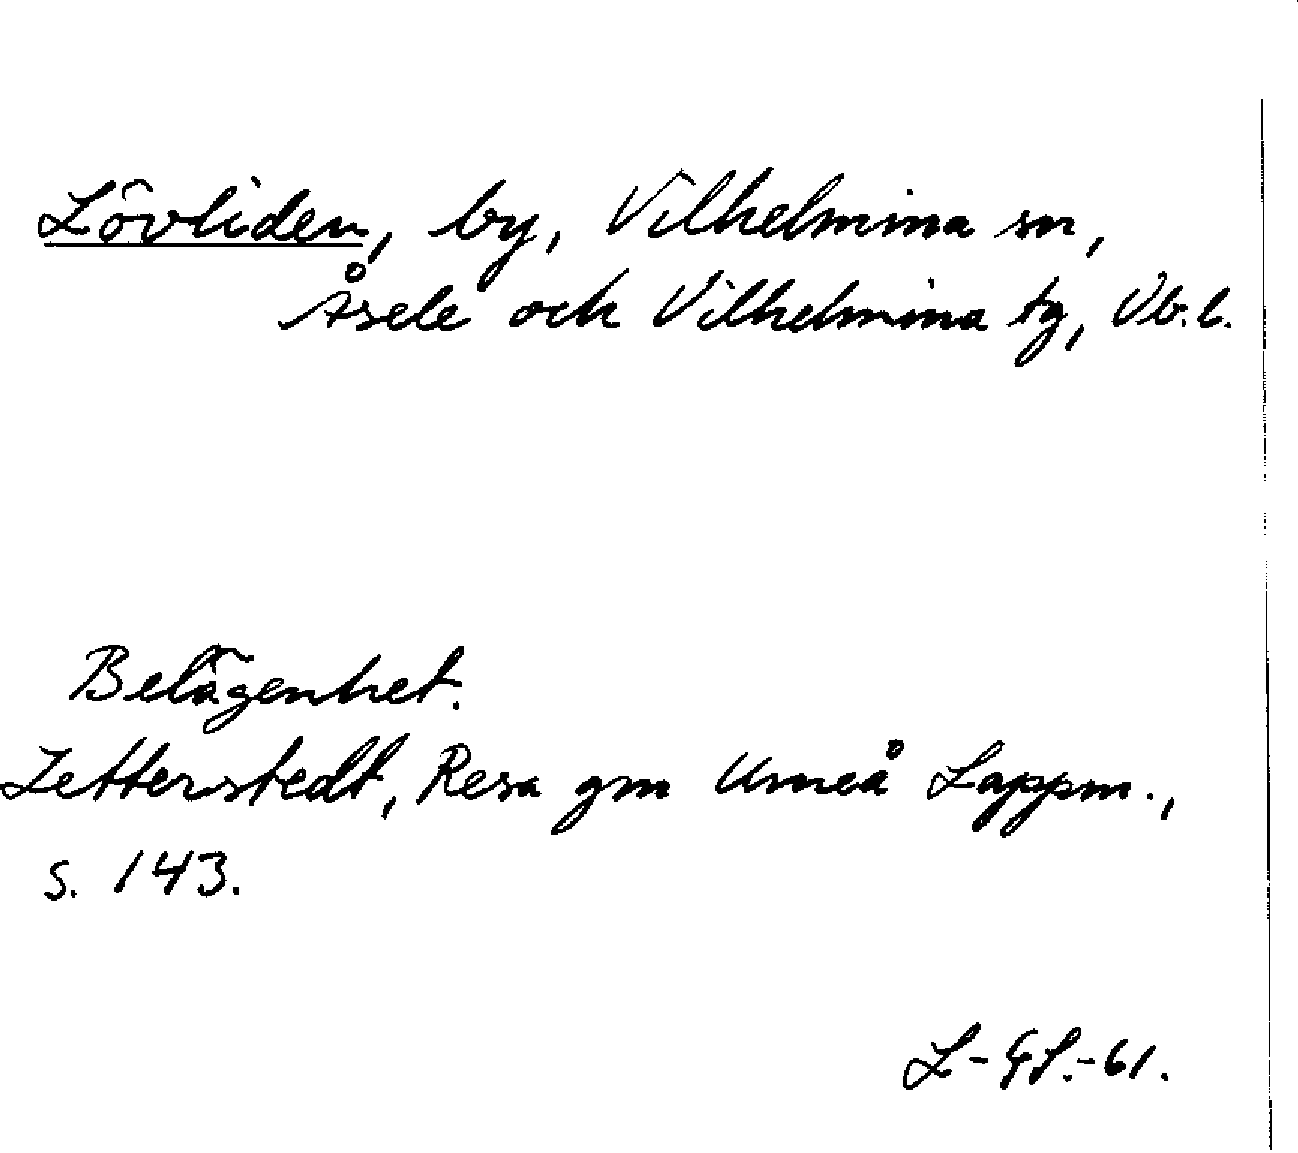 Lövliden, by, Vilhelmina sn,
Åsele och Vilhelmina tg, Vb.l.
Belägenhet.
Zetterstedt, Resa gm Umeå Lappm.,
s. 143.
L-GS.-61.